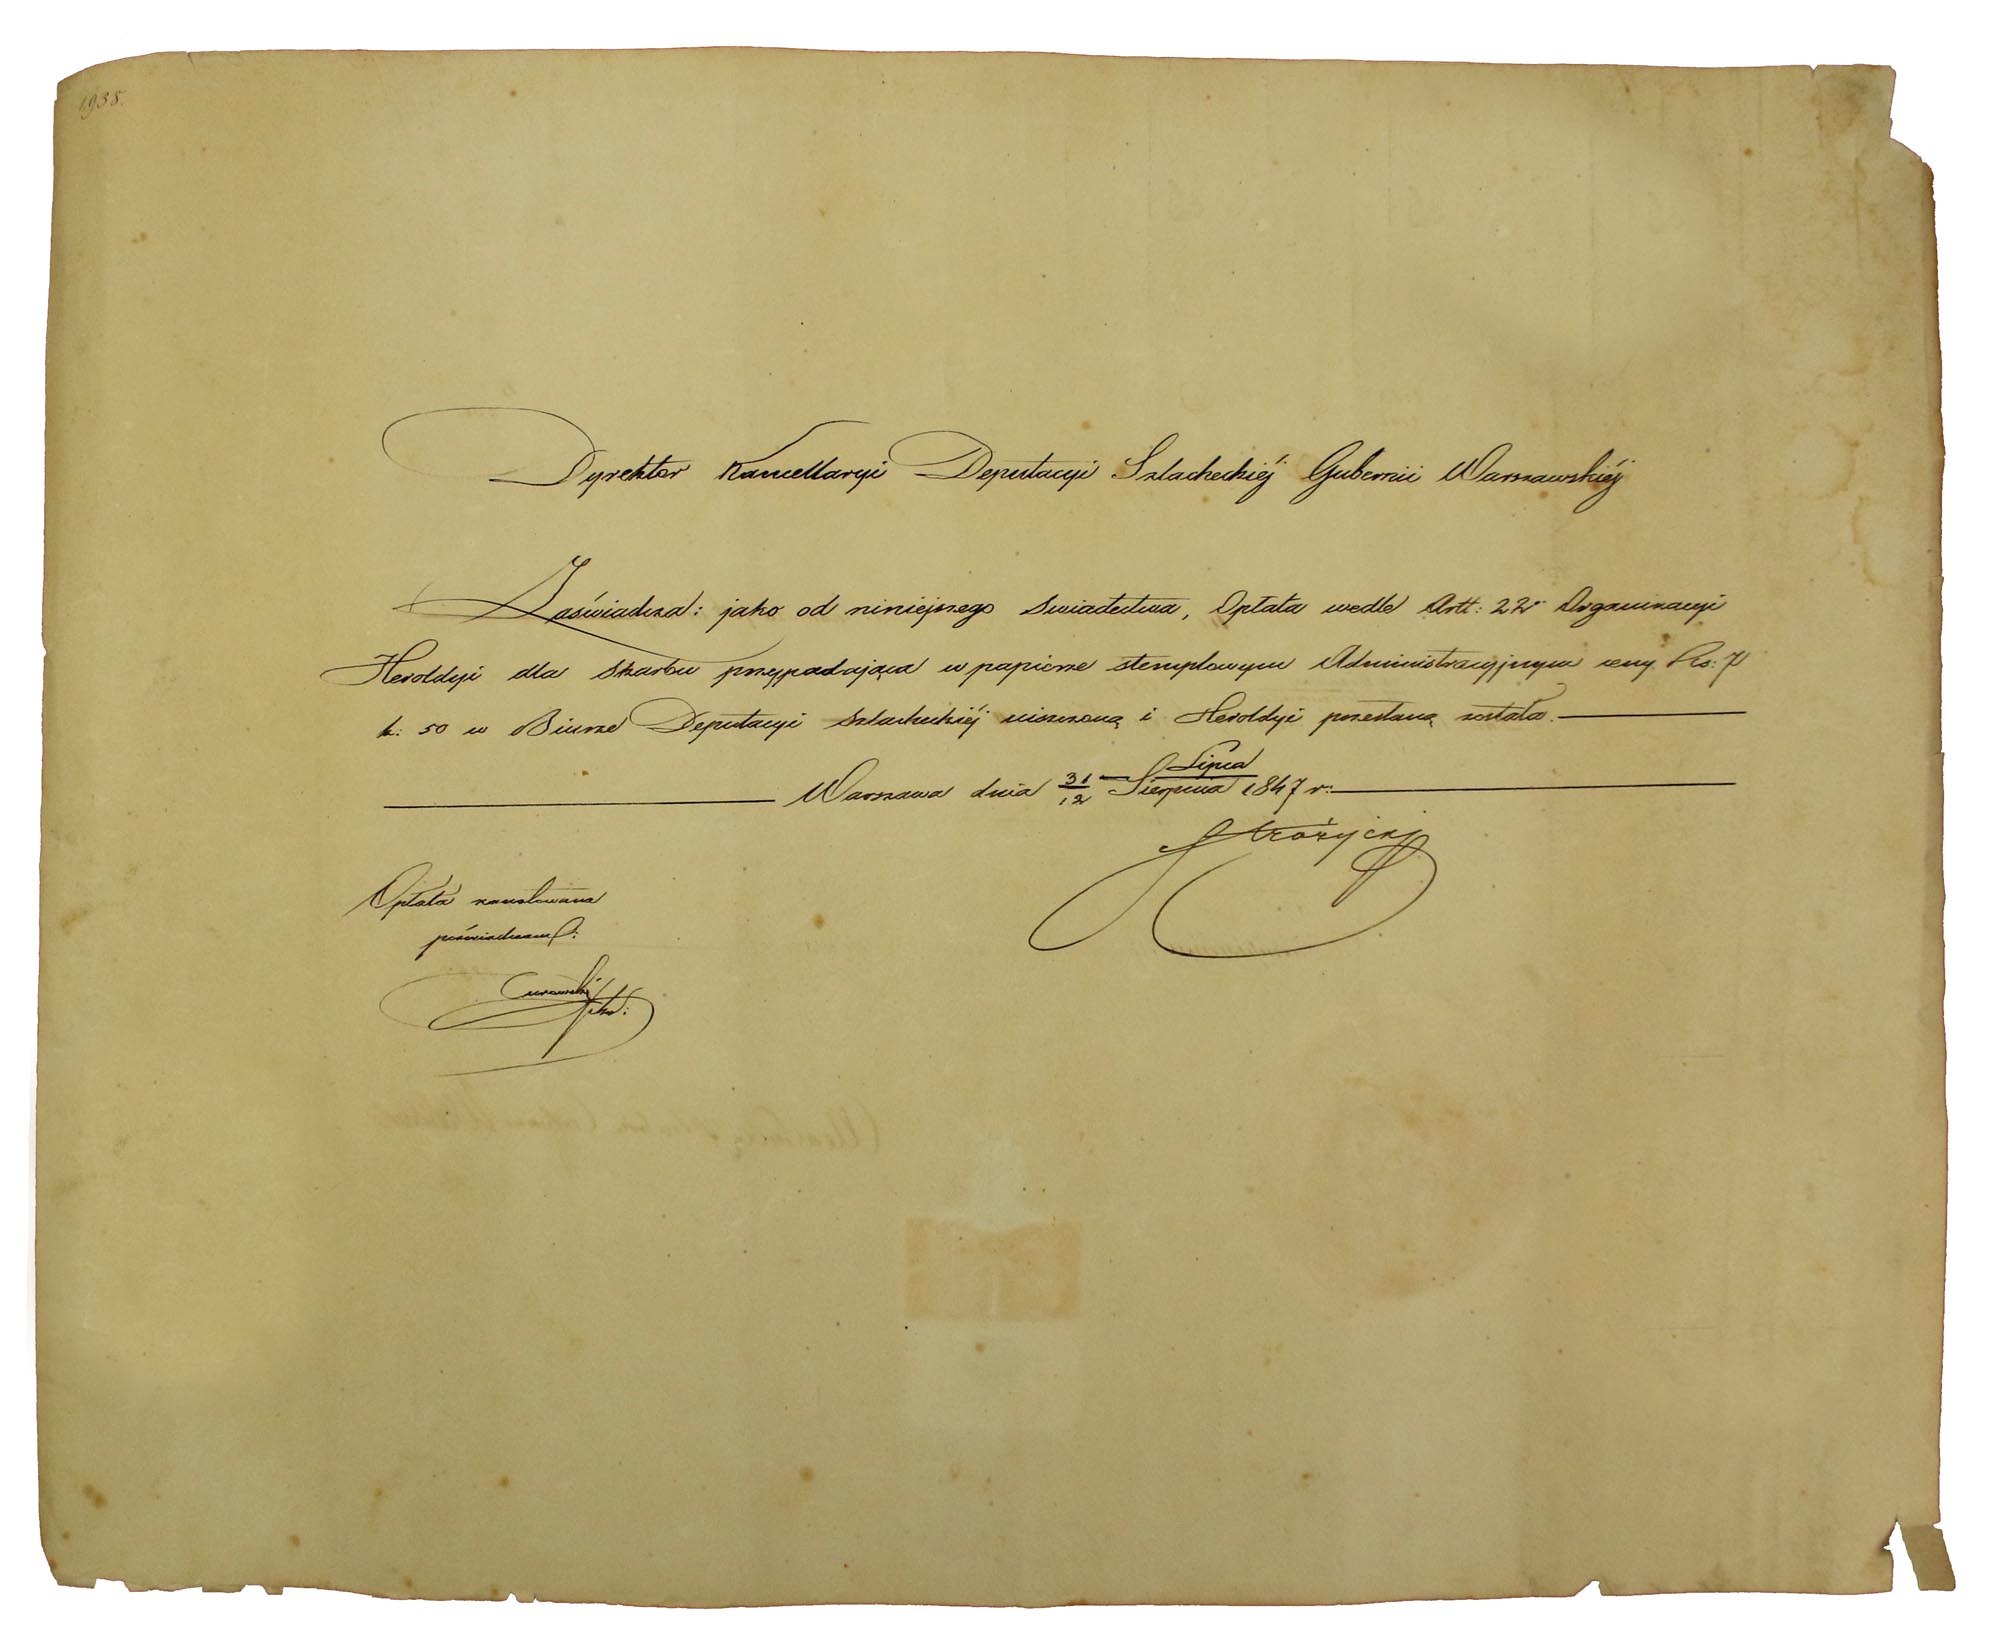 1938.
Dyrektor Kancellaryi Deputacyi Szlacheckiéj Gubernii Warszawskiéj
Zaświadcza: jako od niniejszego Swiadectwa, Opłata wedle Artt: 22 Organizacyi
Heroldyi dla Skarbu przypadająca w papierze stemplowym Administracyjnym ceny Rs: 7
k: 50 w Biurze Deputacyi Szlacheckiéj uiszczoną i Heroldyi przesłaną została.
Warszawa dnia 31/12 Lipca/Sierpnia 1847 r:
Strożycki
Opłata zanotowana
poświadczam